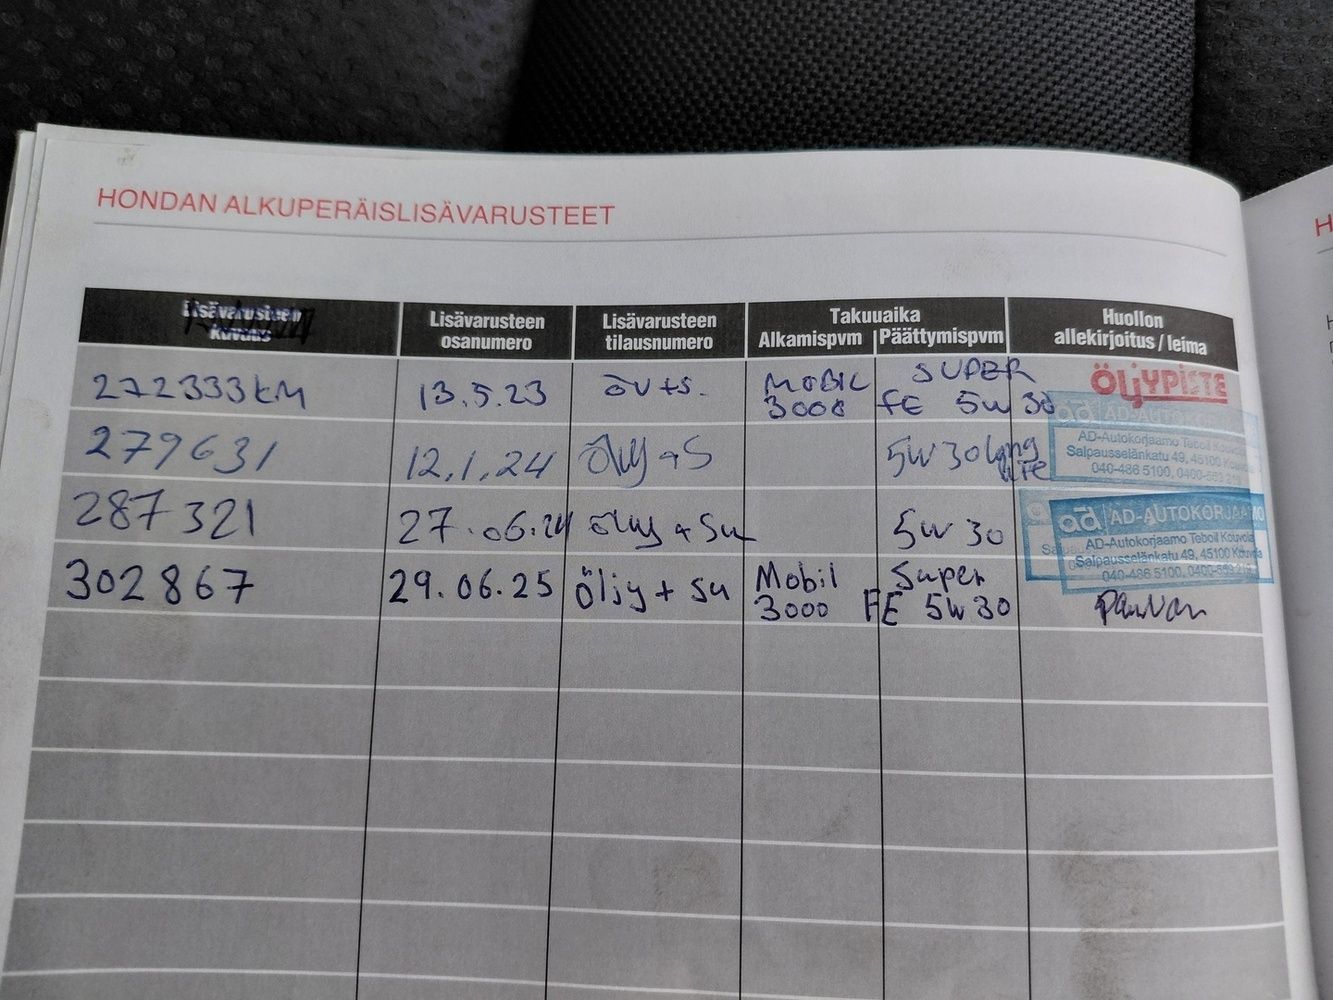 HONDAN ALKUPERÄISLISÄVARUSTEET
H
Lisävarusteen
kuvaus
Lisävarusteen
osanumero
Lisävarusteen
tilausnumero
Takuuaika
Alkamispvm
Päättymispvm
Huollon
allekirjoitus / leima
272333KM 13.5.23 ÖV+S. MOBIL SUPER
3000 FE 5W30
ÖLJYPISTE
279631 12.1.24 Öljy+S 5W30 Long
life
ad AD-AUTOKORJAAMO
AD-Autokorjaamo Teboil Kouvola
Salpausselänkatu 49, 45100 Kouvola
040-486 5100, 0400-553
287321 27.06.24 Öljy+Su 5W30
ad AD-AUTOKORJAAMO
AD-Autokorjaamo Teboil Kouvola
Salpausselänkatu 49, 45100 Kouvola
040-486 5100, 0400-553
302867 29.06.25 Öljy + Su Mobil Super
3000 FE 5W30